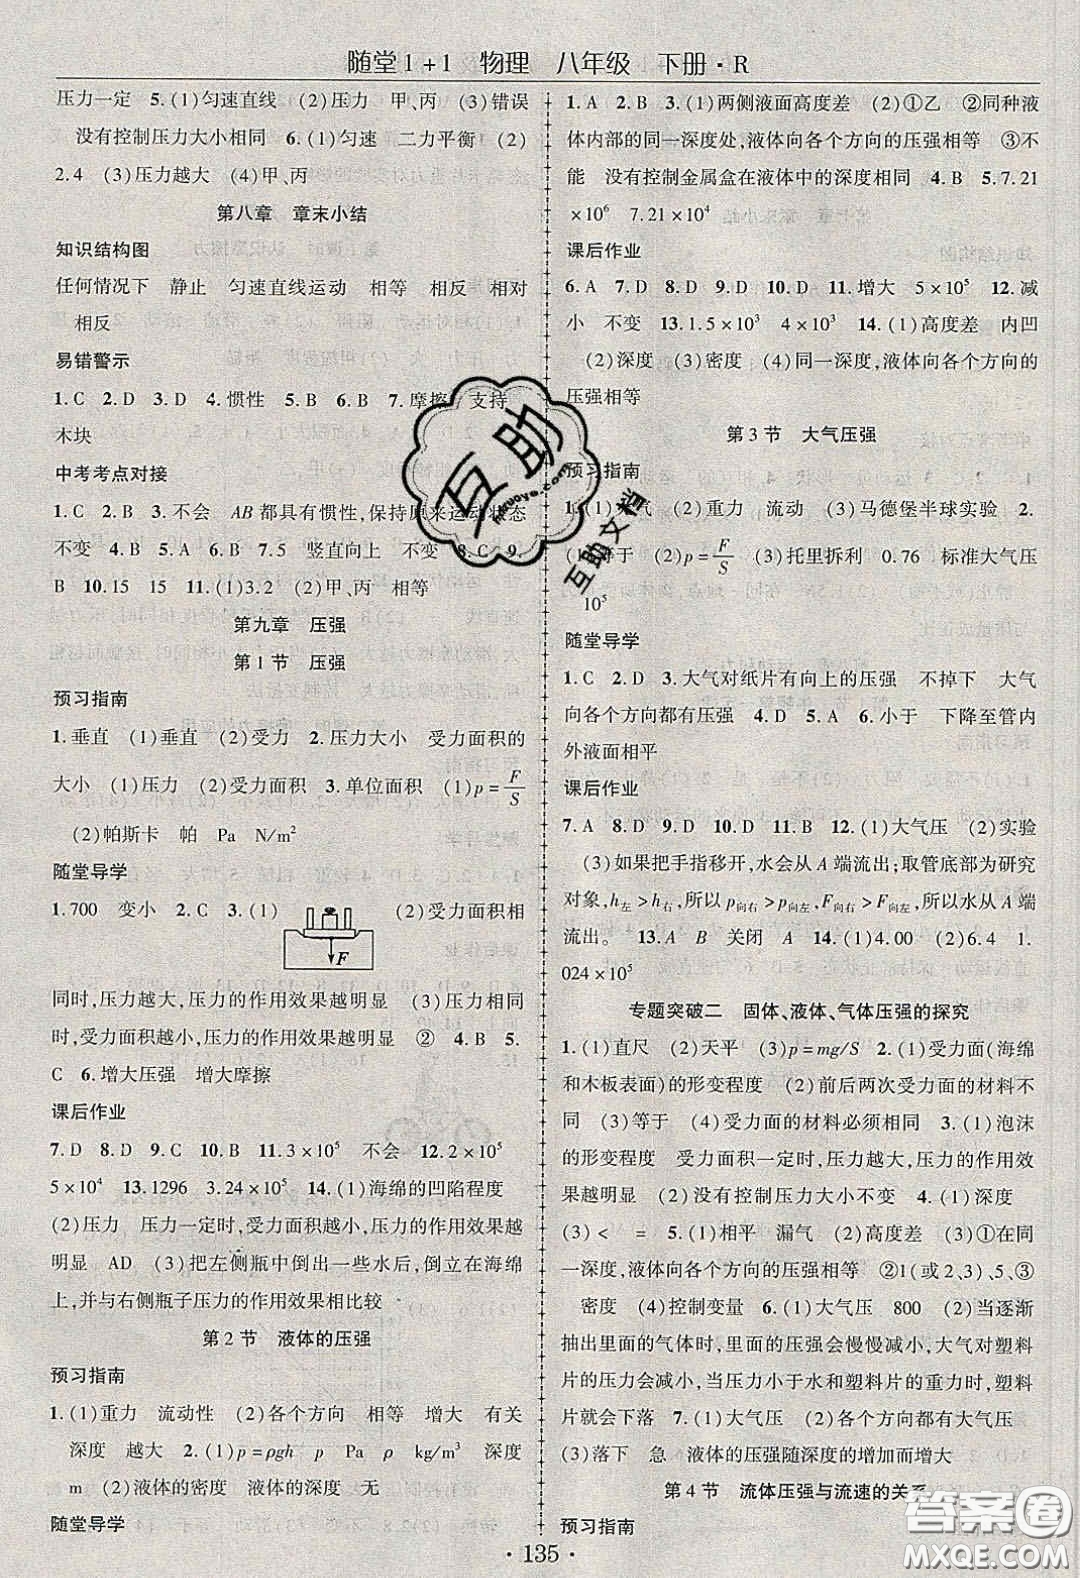 随堂1+1 物理 八年级 下册·R
压力一定 5.(1)匀速直线 (2)压力 甲、丙 (3)错误
没有控制压力大小相同 6.(1)匀速 二力平衡 (2)
2.4 (3)压力越大 (4)甲、丙
第八章 章末小结
知识结构图
任何情况下 静止 匀速直线运动 相等 相反 相对
相反
易错警示
1.C 2.D 3.D 4.惯性 5.B 6.B 7.摩擦 支持
木块
中考考点对接
1.C 2.B 3.不会 AB都具有惯性,保持原来运动状态
不变 4.B 5.B 6.B 7.5 竖直向上 不变 8.C 9.
B 10.15 15 11.(1)3.2 (2)甲、丙 相等
第九章 压强
第1节 压强
预习指南
1.垂直 (1)垂直 (2)受力 2.压力大小 受力面积的
大小 (1)压力 (2)受力面积 3.单位面积 (1)p=F/S
(2)帕斯卡 帕 Pa N/m²
随堂导学
1.700 变小 2.C 3.(1) F (2)受力面积相
同时,压力越大,压力的作用效果越明显 (3)压力相同
时,受力面积越小,压力的作用效果越明显 ② 4.B 5.
C 6.增大压强 增大摩擦
课后作业
7.D 8.D 9.C 10.B 11.3×10⁵ 不会 12.2×10⁵
5×10⁴ 13.1296 3.24×10⁵ 14.(1)海绵的凹陷程度
(2)压力 压力一定时,受力面积越小,压力的作用效果越
明显 AD (3)把左侧瓶中倒出一些水后,倒放在海绵
上,并与右侧瓶子压力的作用效果相比较
第2节 液体的压强
预习指南
1.(1)重力 流动性 (2)各个方向 相等 增大 有关
深度 越大 2.(1)p=ρgh p Pa ρ kg/m³ 深度
m (2)液体的密度 液体的深度 无
随堂导学
1.A 2.B 3.(1)两侧液面高度差 (2)①乙 ②同种液
体内部的同一深度处,液体向各个方向的压强相等 ③不
能 没有控制金属盒在液体中的深度相同 4.B 5.7.21
×10⁶ 7.21×10⁴
课后作业
6.A 7.D 8.D 9.D 10.D 11.增大 5×10⁵ 12.减
小 不变 13.1.5×10³ 4×10³ 14.(1)高度差 内凹
(2)深度 (3)密度 (4)同一深度,液体向各个方向的
压强相等
第3节 大气压强
预习指南
1.(1)大气 (2)重力 流动 (3)马德堡半球实验 2.
(1)等于 (2)p=F/S (3)托里拆利 0.76 标准大气压
10⁵
随堂导学
1.C 2.D 3.大气对纸片有向上的压强 不掉下 大气
向各个方向都有压强 4.D 5.A 6.小于 下降至管内
外液面相平
课后作业
7.A 8.D 9.D 10.D 11.D 12.(1)大气压 (2)实验
(3)如果把手指移开,水会从A端流出;取管底部为研究
对象,h左>h右,所以p向右>p向左,F向右>F向左,所以水从A端
流出。 13.A B 关闭 A 14.(1)4.00 (2)6.4 1.
024×10⁵
专题突破二 固体、液体、气体压强的探究
1.(1)直尺 (2)天平 (3)p=mg/S 2.(1)受力面(海绵
和木板表面)的形变程度 (2)前后两次受力面的材料不
同 (3)等于 (4)受力面的材料必须相同 3.(1)泡沫
的形变程度 受力面积一定时,压力越大,压力的作用效
果越明显 (2)没有控制压力大小不变 4.(1)深度
(3)< = 5.(1)相平 漏气 (2)高度差 (3)①在同
一深度,液体向各个方向的压强相等 ②1(或2、3)、5、③
密度 (4)控制变量 6.(1)大气压 800 (2)当逐渐
抽出里面的气体时,里面的压强会慢慢减小,大气对塑料
片的压力会减小,当压力小于水和塑料片的重力时,塑料
片就会下落 7.(1)大气压 (2)各个方向都有大气压
(3)落下 急 液体的压强随深度的增加而增大
第4节 流体压强与流速的关系
预习指南
·135·
互助
Huzuoye.com
互助文档
答案圈
MXQE.COM